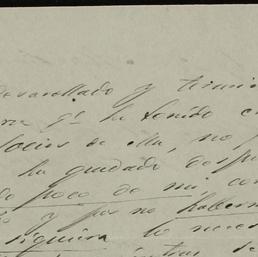 desarollado y termin
qᵉ ha tenido c
socios de ella, no
ha quedado desp
poco de mi, con
y por no haber
siquiera lo nece